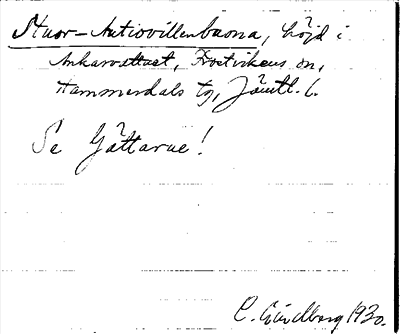 Stuor-Antiovillenbuona, höjd i
Ankarvattnet, Frostvikens sn,
Hammerdals tg, Jämtl. l.
Se Gåttarue!
C. Lindberg 1930.